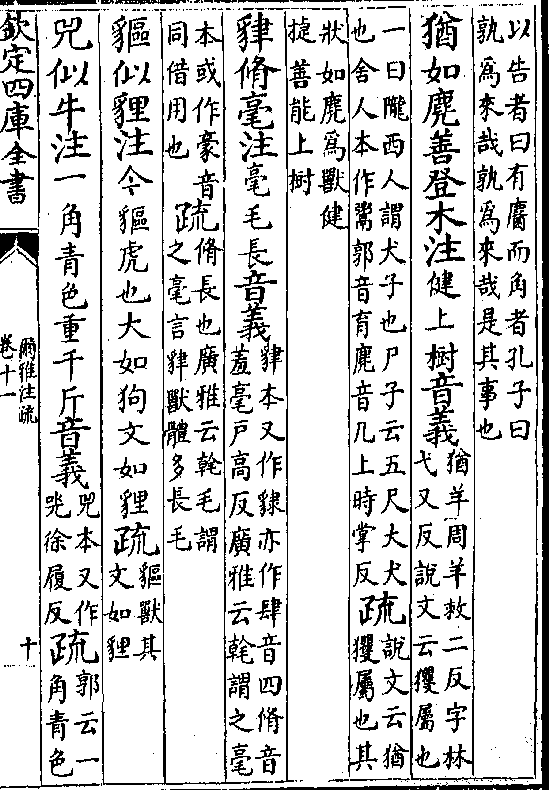 以告者曰有麕而角者孔子曰
孰為來哉孰為來哉是其事也
猶如麂善登木注健上樹音義
猶羊周羊救二反字林
弋又反說文云玃屬也
一曰隴西人謂犬子也尸子云五尺大犬
也舍人本作鬻郭音育麂音几上時掌反
疏
說文云猶
玃屬也其
狀如麂為獸健
捷善能上樹
貄脩毫注毫毛長音義
貄本又作肄亦作肆音四脩音
羞毫戸高反廣雅云毫謂之毫
本或作豪音
同借用也
疏
脩長也廣雅云毫毛謂
之毫言貄獸體多長毛
貙似貍注今貙虎也大如狗文如貍疏
貙獸其
文如貍
兕似牛注一角青色重千斤音義
兕本又作
光徐履反
疏
郭云一
角青色
欽定四庫全書
爾雅注疏
卷十一
十